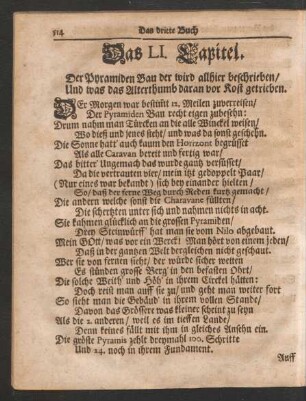 314 Das dritte Buch
Das LI. Capitel.
Der Pyramiden Bau der wird allhier beschrieben/
Und was das Alterthumb daran vor Kost getrieben.
DEr Morgen war bestimt 12. Meilen zuverreisen/
Der Pyramiden Bau recht eigen zubesehn:
Drum nahm man Türcken an die alle Winckel weisen/
Wo dieß und jenes steht/ und was da sonst geschehn.
Die Sonne hatt' auch kaum den Horizont begrüsset
Als alle Caravan bereit und fertig war/
Das bitter Ungemach das wurde gantz versüsset/
Da die vertrauten vier/ mein itzt gedoppelt Paar/
(Nur eines war bekandt) sich bey einander hielten/
So/ daß der ferne Weg durch Reden kurtz gemacht/
Die andern welche sonst die Charavane füllten/
Die schertzten unter sich und nahmen nichts in acht.
Sie kahmen glücklich an die grossen Pyramiden/
Drey Steinwürff hat man sie vom Nilo abgebaut.
Mein GOtt/ was vor ein Werck! Man hört von einem jeden/
Daß in der gantzen Welt dergleichen nicht geschaut.
Wer sie von fernen sieht/ der würde sicher wetten
Es stünden grosse Berg' in den befasten Ohrt/
Die solche Weith' und Höh' in ihrem Circkel hätten:
Doch reist man auff sie zu/ und geht man weiter fort
So sieht man die Gebäud' in ihrem vollen Stande/
Davon das Grössere was kleiner scheint zu seyn
Als die 2. anderen/ weil es im tieffen Lande/
Denn keines fällt mit ihm in gleiches Ansehn ein.
Die gröste Pyramis zehlt dreymahl 100. Schritte
Und 24. noch in ihrem Fundament.
Auff